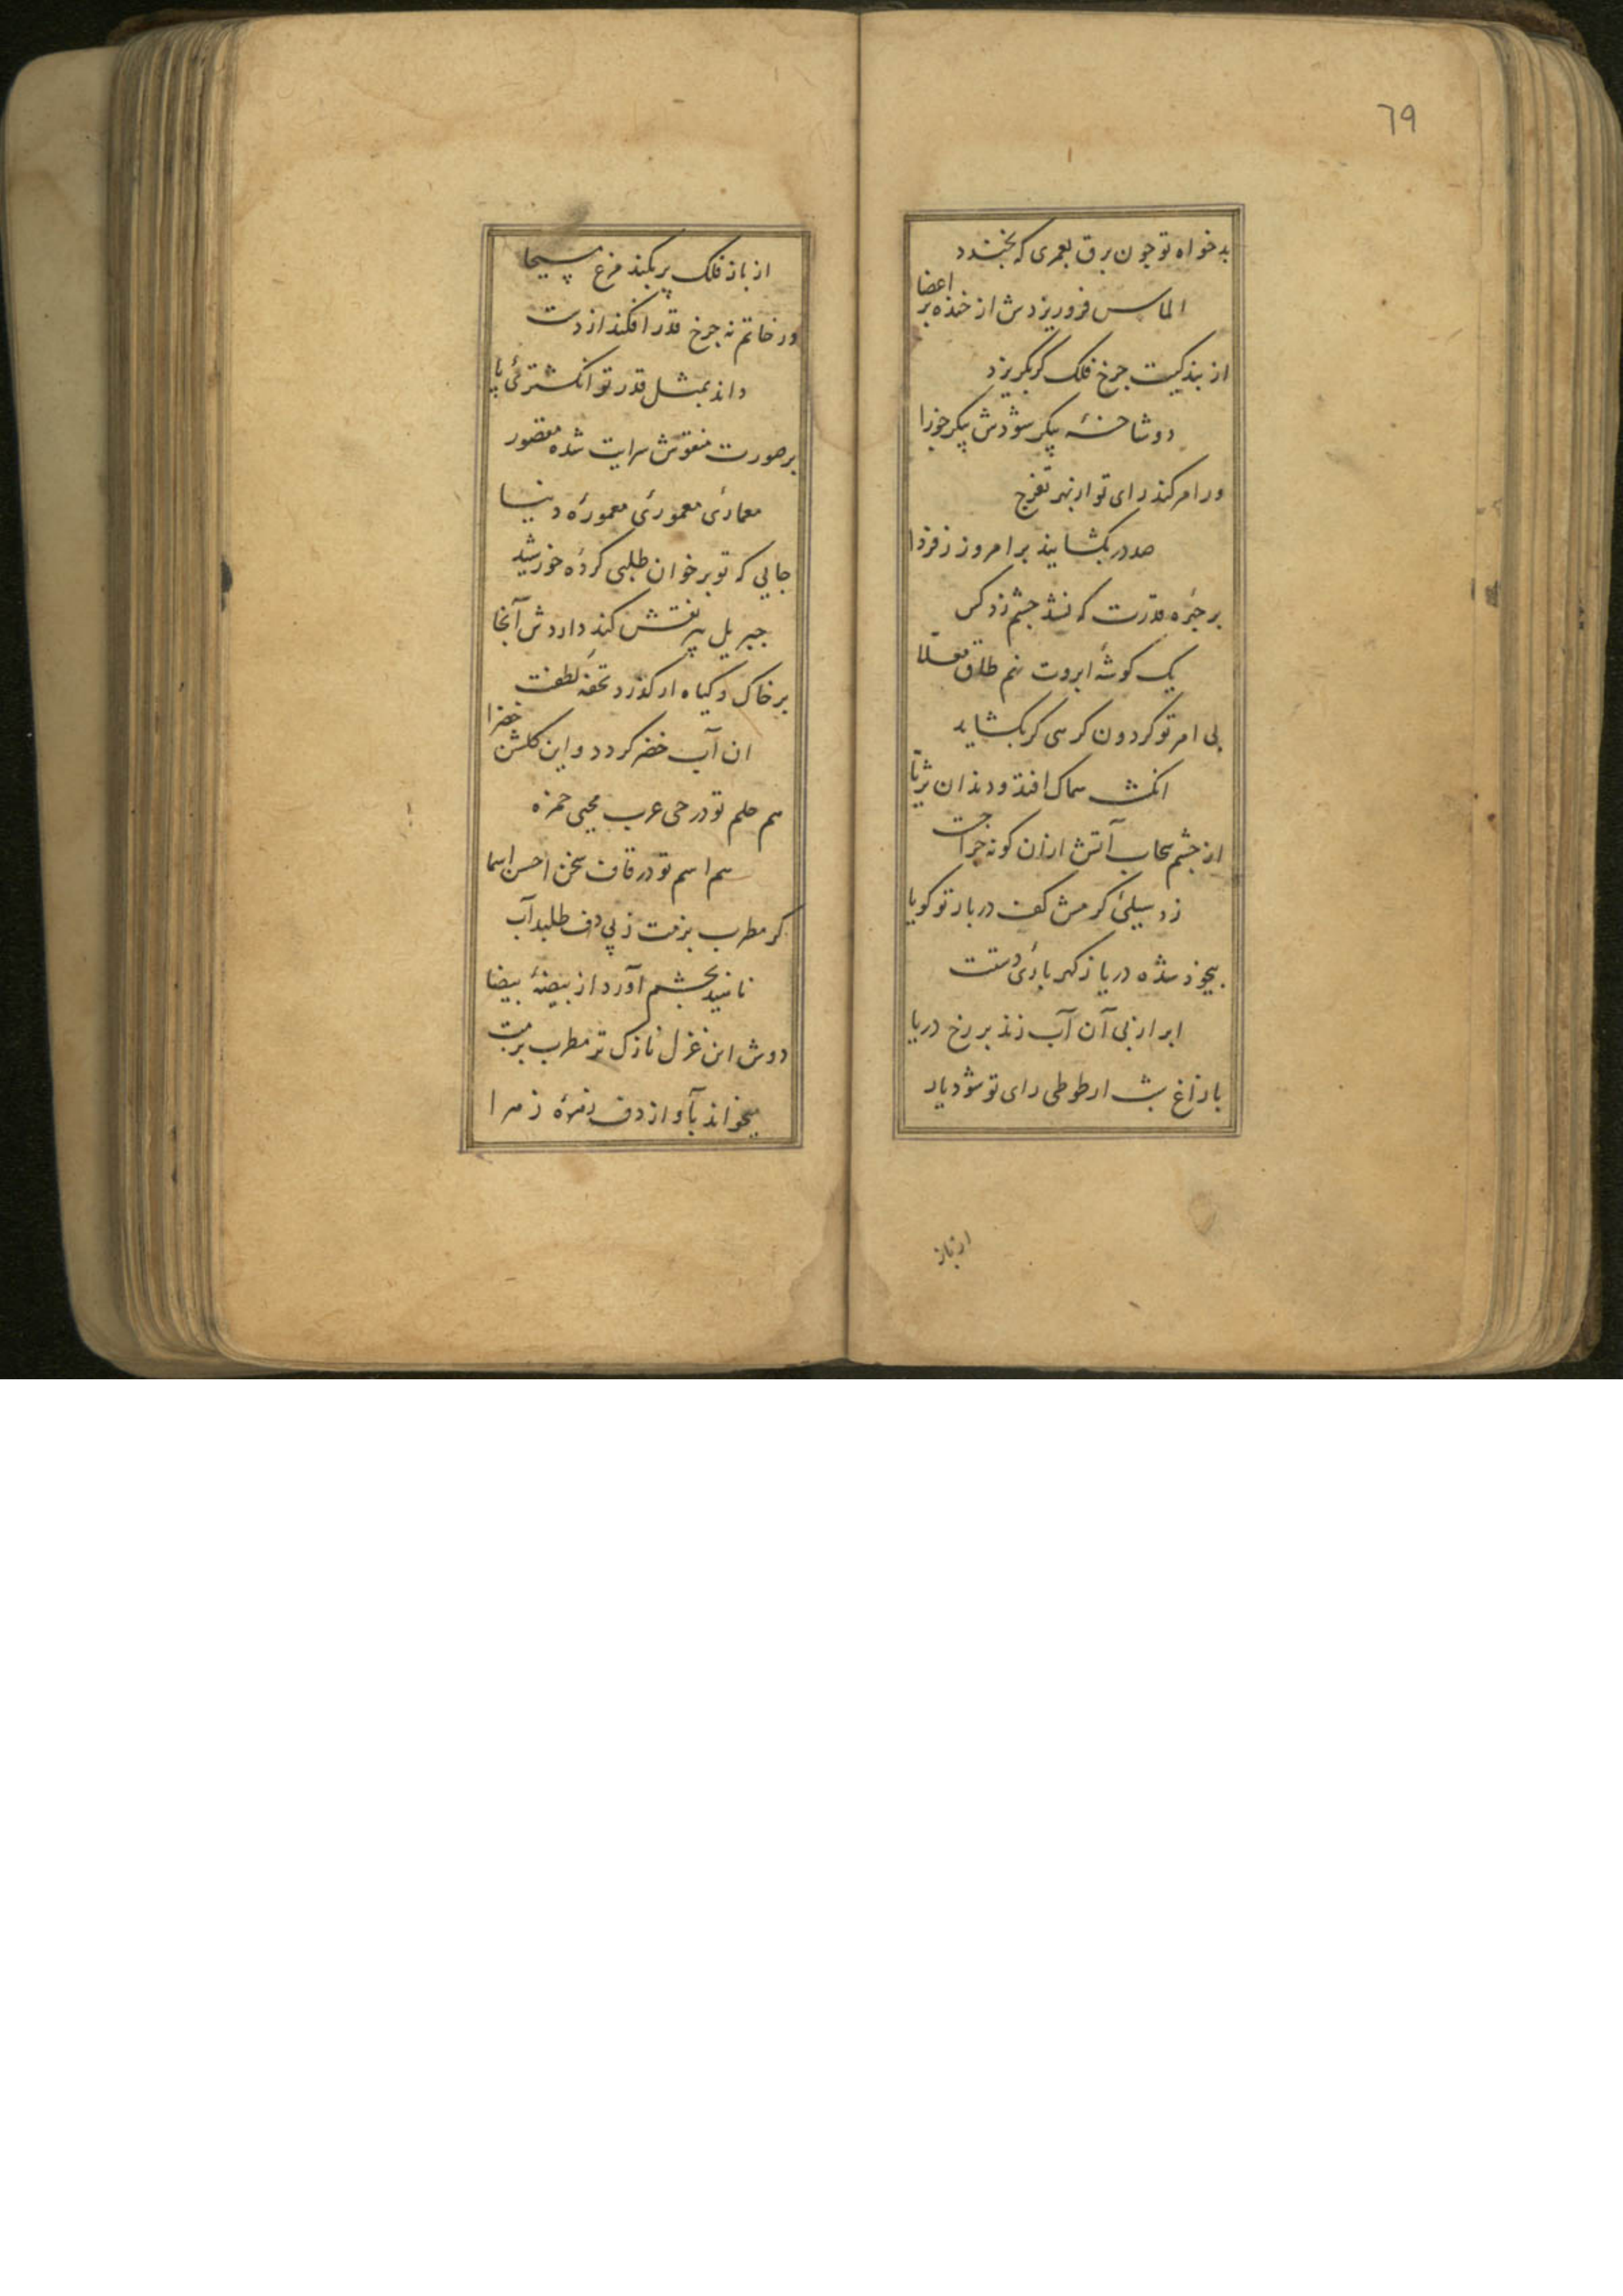 ٦٩
بدخواه تو چون برق بعمری که بخندد
الماس فرو ریزدش از خنده بر اعضا
از بندگیت چرخ فلک گر بگریزد
دو شاخۀ پیکر شودش پیکر جوزا
ور امر کند رای تو از بهر تفرج
صد در بگشایند بر امروز ز فردا
بر جبرهٔ قدرت که نشد چشم زد کس
یک گوشۀ ابروت نهم طاق معلّا
بی امر تو گردون گرهی گر بگشاید
انگشت سماک افتد و دندان ثریّا
از چشم سحاب آتش ازان گونه جهد
زد سیلیٔ گرمش کف دربار تو گویا
بیخود شده دریا ز گهرباریٔ دستت
ابر از پی آن آب زند بر رخ دریا
با زاغ شب ار طوطی رای تو شود یار
از باز
از باز فلک پر بکند مرغ مسیحا
ور خاتم نه چرخ قدر افکند از دست
داند بمثل قدر تو انگشتریٔ پا
بر صورت منقوش سرایت شده مقصور
معماریٔ معموریٔ معمورهٔ دنیا
جایی که تو بر خوان طلبی گردهٔ خورشید
جبریل بپر نقش کند داردش آنجا
بر خاک و گیاه ار گذرد تحفۀ لطفت
ان آب خضر گردد و این گلشن خضرا
هم حلم تو در حی عرب محیی حمزه
هم اسم تو در قاف سخن احسن اسما
گر مطرب بزمت ز پی دف طلبد آب
ناهید بچشم آورد از بیضۀ بیضا
دوش این غزل نازک تر مطرب بزمت
میخواند بآواز دف زهرهٔ زهرا